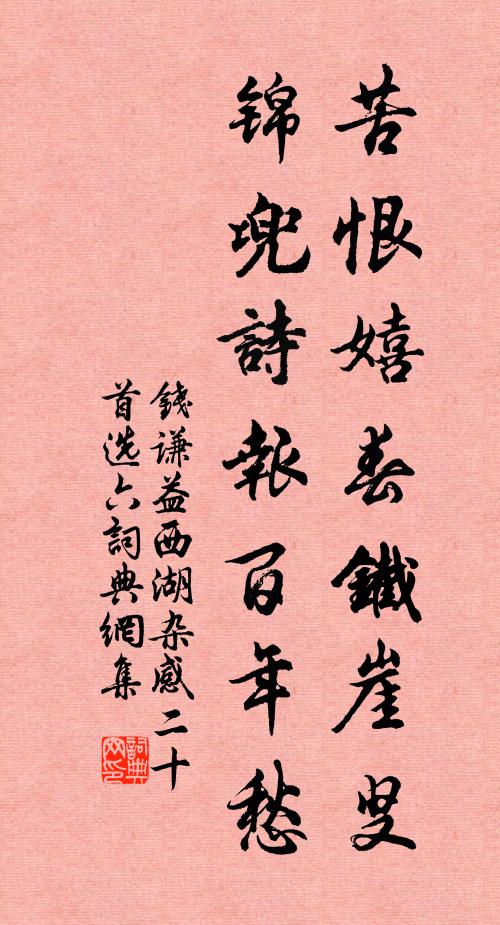 苦恨嬉春鐵崖叟
锦兜詩報百年愁
錢谦益西湖杂感二十
首选六詞典網集
詞典网印